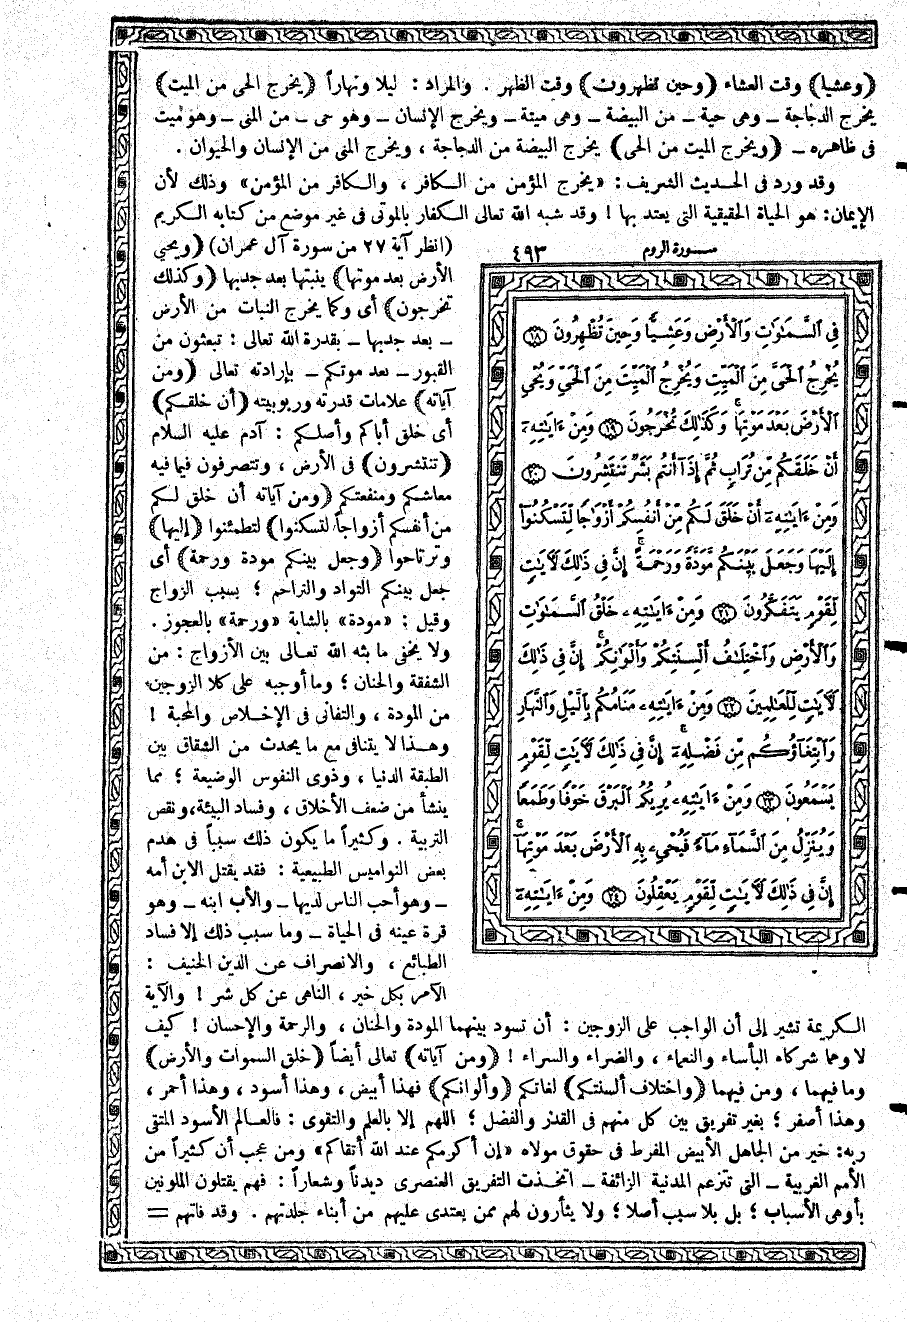 (وعشيا) وقت العشاء (وحين تظهرون) وقت الظهر . والمراد : ليلا ونهاراً (يخرج الحى من الميت)
يخرج الدجاجة ــ وهى حية ــ من البيضة ــ وهى ميتة ــ ويخرج الإنسان ــ وهو حى ــ من المنى ــ وهو ميت
فى ظاهره ــ (ويخرج الميت من الحى) يخرج البيضة من الدجاجة ، ويخرج المنى من الإنسان والحيوان .
وقد ورد فى الحديث الشريف : «يخرج المؤمن من الكافر ، والكافر من المؤمن» وذلك لأن
الإيمان: هو الحياة الحقيقية التى يعتد بها ! وقد شبه الله تعالى الكفار بالموتى فى غير موضع من كتابه الكريم
(انظر آية ٢٧ من سورة آل عمران) (ويحيي
الأرض بعد موتها) ينبتها بعد جدبها (وكذلك
تخرجون) أى وكما يخرج النبات من الأرض
ــ بعد جدبها ــ بقدرة الله تعالى : تبعثون من
القبور ــ بعد موتكم ــ بإرادته تعالى (ومن
آياته) علامات قدرته وربوبيته (أن خلقكم)
أى خلق أباكم وأصلكم : آدم عليه السلام
(تنتشرون) فى الأرض ، وتتصرفون فيما فيه
معاشكم ومنفعتكم (ومن آياته أن خلق لكم
من أنفسكم أزواجاً لتسكنوا) لتطمئنوا (إليها)
وترتاحوا (وجعل بينكم مودة ورحمة) أى
جعل بينكم التواد والتراحم ؛ بسبب الزواج
وقيل : «مودة» بالشابة «ورحمة» بالعجوز .
ولا يخفى ما بثه الله تعالى بين الأزواج : من
الشفقة والحنان ؛ وما أوجبه على كلا الزوجين
من المودة ، والتفانى فى الإخلاص والمحبة !
وهذا لا يتنافى مع ما يحدث من الشقاق بين
الطبقة الدنيا ، وذوى النفوس الوضيعة ؛ مما
ينشأ من ضعف الأخلاق ، وفساد البيئة، ونقص
التربية . وكثيراً ما يكون ذلك سبباً فى هدم
بعض النواميس الطبيعية : فقد يقتل الابن أمه
ــ وهو أحب الناس لديها ــ والأب ابنه ــ وهو
قرة عينه فى الحياة ــ وما سبب ذلك إلا فساد
الطبائع ، والانصراف عن الدين الحنيف :
الآمر بكل خير ، الناهى عن كل شر ! والآية
سورة الروم ٤٩٣
فِى ٱلسَّمَٰوَٰتِ وَٱلْأَرْضِ وَعَشِيًّا وَحِينَ تُظْهِرُونَ ﴿١٨﴾
يُخْرِجُ ٱلْحَىَّ مِنَ ٱلْمَيِّتِ وَيُخْرِجُ ٱلْمَيِّتَ مِنَ ٱلْحَىِّ وَيُحْىِ
ٱلْأَرْضَ بَعْدَ مَوْتِهَا ۚ وَكَذَٰلِكَ تُخْرَجُونَ ﴿١٩﴾ وَمِنْ ءَايَٰتِهِۦٓ
أَنْ خَلَقَكُم مِّن تُرَابٍ ثُمَّ إِذَآ أَنتُم بَشَرٌ تَنتَشِرُونَ ﴿٢٠﴾
وَمِنْ ءَايَٰتِهِۦٓ أَنْ خَلَقَ لَكُم مِّنْ أَنفُسِكُمْ أَزْوَٰجًا لِّتَسْكُنُوٓا۟
إِلَيْهَا وَجَعَلَ بَيْنَكُم مَّوَدَّةً وَرَحْمَةً ۚ إِنَّ فِى ذَٰلِكَ لَءَايَٰتٍ
لِّقَوْمٍ يَتَفَكَّرُونَ ﴿٢١﴾ وَمِنْ ءَايَٰتِهِۦ خَلْقُ ٱلسَّمَٰوَٰتِ
وَٱلْأَرْضِ وَٱخْتِلَٰفُ أَلْسِنَتِكُمْ وَأَلْوَٰنِكُمْ ۚ إِنَّ فِى ذَٰلِكَ
لَءَايَٰتٍ لِّلْعَٰلِمِينَ ﴿٢٢﴾ وَمِنْ ءَايَٰتِهِۦ مَنَامُكُم بِٱلَّيْلِ وَٱلنَّهَارِ
وَٱبْتِغَآؤُكُم مِّن فَضْلِهِۦٓ ۚ إِنَّ فِى ذَٰلِكَ لَءَايَٰتٍ لِّقَوْمٍ
يَسْمَعُونَ ﴿٢٣﴾ وَمِنْ ءَايَٰتِهِۦ يُرِيكُمُ ٱلْبَرْقَ خَوْفًا وَطَمَعًا
وَيُنَزِّلُ مِنَ ٱلسَّمَآءِ مَآءً فَيُحْىِۦ بِهِ ٱلْأَرْضَ بَعْدَ مَوْتِهَآ ۚ
إِنَّ فِى ذَٰلِكَ لَءَايَٰتٍ لِّقَوْمٍ يَعْقِلُونَ ﴿٢٤﴾ وَمِنْ ءَايَٰتِهِۦٓ
الكريمة تشير إلى أن الواجب على الزوجين : أن تسود بينهما المودة والحنان ، والرحمة والإحسان ! كيف
لا وهما شركاء البأساء والنعماء ، والضراء والسراء ! (ومن آياته) تعالى أيضاً (خلق السموات والأرض)
وما فيهما ، ومن فيهما (واختلاف ألسنتكم) لغاتكم (وألوانكم) فهذا أبيض ، وهذا أسود ، وهذا أحمر ،
وهذا أصفر ؛ بغير تفريق بين كل منهم فى القدر والفضل ؛ اللهم إلا بالعلم والتقوى : فالعالم الأسود المتقى
ربه: خير من الجاهل الأبيض المفرط فى حقوق مولاه «إن أكرمكم عند الله أتقاكم» ومن عجب أن كثيراً من
الأمم الغربية ــ التى تتزعم المدنية الزائفة ــ اتخذت التفريق العنصرى ديدناً وشعاراً : فهم يقتلون الملونين
بأوهى الأسباب ؛ بل بلا سبب أصلا ؛ ولا يثأرون لهم ممن يعتدى عليهم من أبناء جلدتهم . وقد فاتهم =